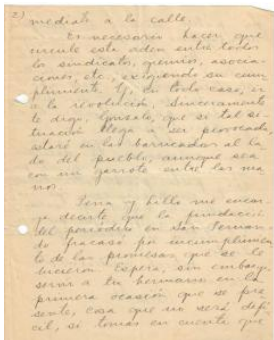 2)
mediato a la calle.
Es necesario hacer que
circule esta orden entre todos
los sindicatos, gremios, asocia-
ciones, etc., exigiendo su cum-
plimiento. Y, en todo caso, ir
a la revolución. Sinceramente
te digo, Gonzalo, que si tal si-
tuación llega a ser provocada
estaré en las barricadas al la-
do del pueblo, aunque sea
con un garrote entre las ma-
nos.
Pena y Lillo me encar-
ga decirte que la fundación
del periódico en San Fernan-
do fracasó por incumplimien-
to de las promesas que se le
hicieron. Espera, sin embargo,
servir a tu hermano en la
primera ocasión que se pre-
sente, cosa que no será difí-
cil, si tomas en cuenta que